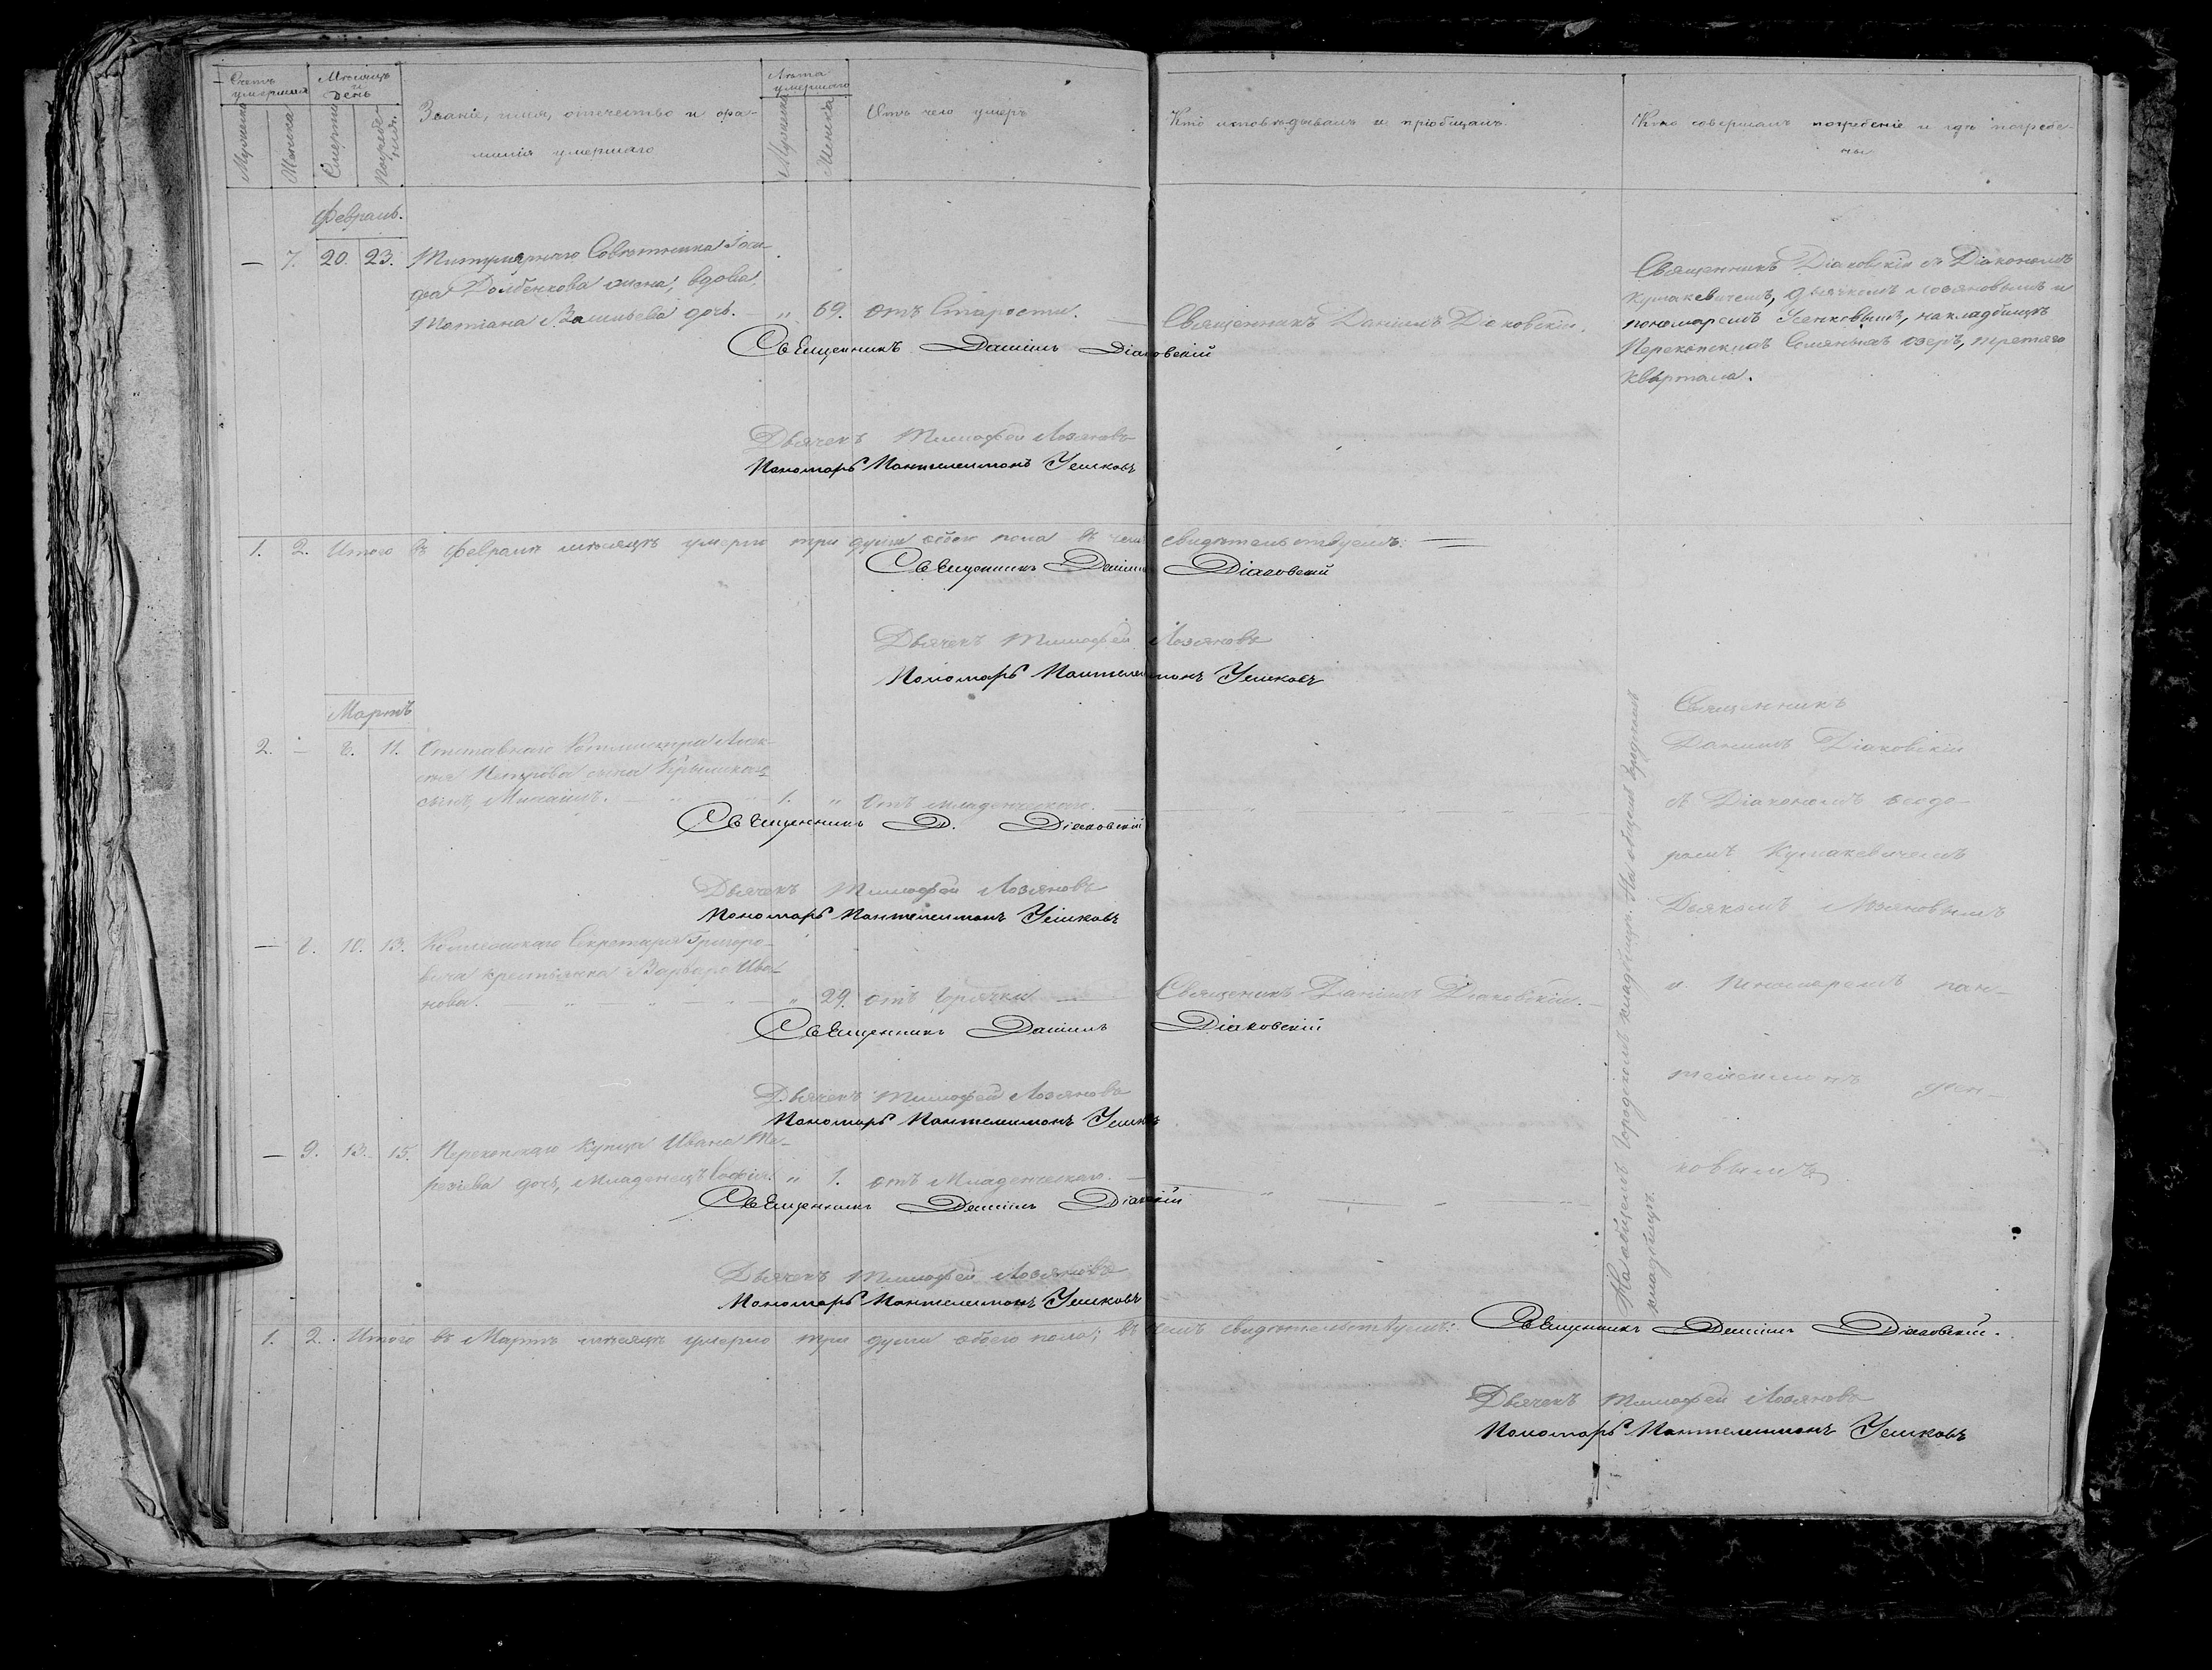 Счетъ умершихъ
Мѣсяцъ и день
Лѣта умершаго
Мужеска
Женска
Смерти
Погребенія.
Званіе, имя, отечество и фа-
милія умершаго
Мужеска
Женска
Отъ чего умеръ
Кто исповѣдывалъ и пріобщалъ.
Кто совершалъ погребеніе и гдѣ погребе-
ны
Февраль.
— 7. 20. 23. Титулярнаго Совѣтника
Долбенкова жена, вдова,
Татіана Васильева дочь. — " 69. отъ Старости. — Священникъ Даніилъ Діаковскій.
Священникъ Діаковскій съ Діакономъ
Кушакевичемъ, дьячкомъ Лозяновымъ и
пономаремъ Усенковымъ, на кладбищѣ
Перекопскихъ Соляныхъ озеръ, третяго
квартала.
Священникъ Даніилъ Діаковскій
Дьячекъ Тимофей Лозяновъ
Пономарь Пантелеимонъ Усенковъ
1. 2. Итого въ Февралѣ мѣсяцѣ умерло три души обоего пола въ чемъ свидѣтельствуемъ:
Священникъ Даніилъ Діаковскій
Дьячекъ Тимофей Лозяновъ
Пономарь Пантелеимонъ Усенковъ
Мартъ
2. — 8. 11. Отставнаго Алек-
Петрова сына
сынъ Михаилъ. — " 1. " Отъ младенческаго.
Священникъ Д. Діаковскій
Дьячекъ Тимофей Лозяновъ
Пономарь Пантелеимонъ Усенковъ
— 8. 11. 13. Коллежскаго Секретаря Григоро-
вича крестьянка Варвара Ива-
нова. — " 29. отъ Горячки — Священникъ Даніилъ Діаковскій.
Священникъ Даніилъ Діаковскій
Дьячекъ Тимофей Лозяновъ
Пономарь Пантелеимонъ Усенковъ
— 9. 13. 15. Перекопскаго Купца Ивана
дочь, младенецъ Софія. " 1. отъ Младенческаго.
Священникъ Даніилъ Діаковскій
Дьячекъ Тимофей Лозяновъ
Пономарь Пантелеимонъ Усенковъ
На общемъ Городскомъ кладбищѣ. На общемъ Городскомъ
кладбищѣ.
Священникъ
Даніилъ Діаковскій
съ Діакономъ Ѳеодо-
ромъ Кушакевичемъ
Дьякомъ Лозяновымъ
и Пономаремъ Пан-
телеимонъ Усен-
ковымъ
1. 2. Итого въ Мартѣ мѣсяцѣ умерло три души обоего пола; въ чемъ свидѣтельствуемъ: Священникъ Даніилъ Діаковскій.
Дьячекъ Тимофей Лозяновъ
Пономарь Пантелеимонъ Усенковъ